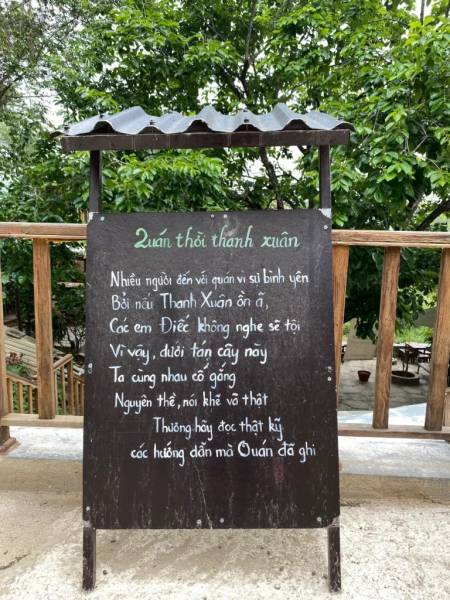 Quán thời thanh xuân
Nhiều người đến với quán vì sự bình yên
Bởi nếu Thanh Xuân ồn ã,
Các em Điếc không nghe sẽ tội
Vì vậy, dưới tán cây này
Ta cùng nhau cố gắng
Nguyên thề, nói khẽ vỗ thật
Thương hãy đọc thật kỹ
các hướng dẫn mà Quán đã ghi